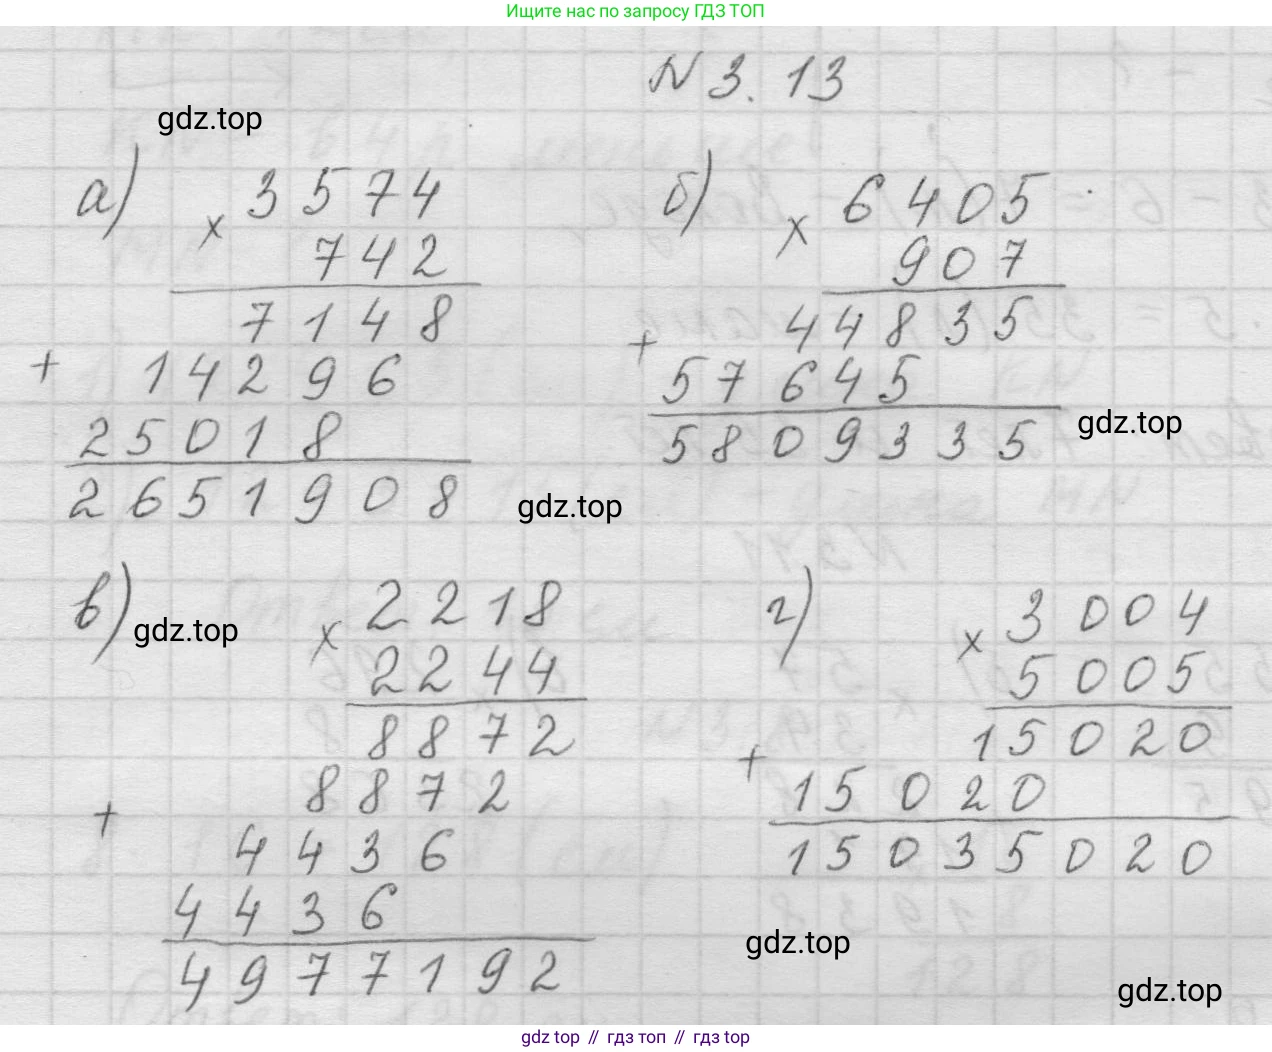 Ищите нас по запросу ГДЗ ТОП
N 3. 13
gdz.top
а) × 3574
742
7148
+ 14296
25018
2651908
gdz.top
б) × 6405
907
44835
+ 57645
5809335
gdz.top
в) × 2218
gdz.top
2244
8872
8872
+ 4436
4436
4977192
г) × 3004
5005
15020
+ 15020
15035020
gdz.top
gdz.top
gdz top // гдз топ // гдз top